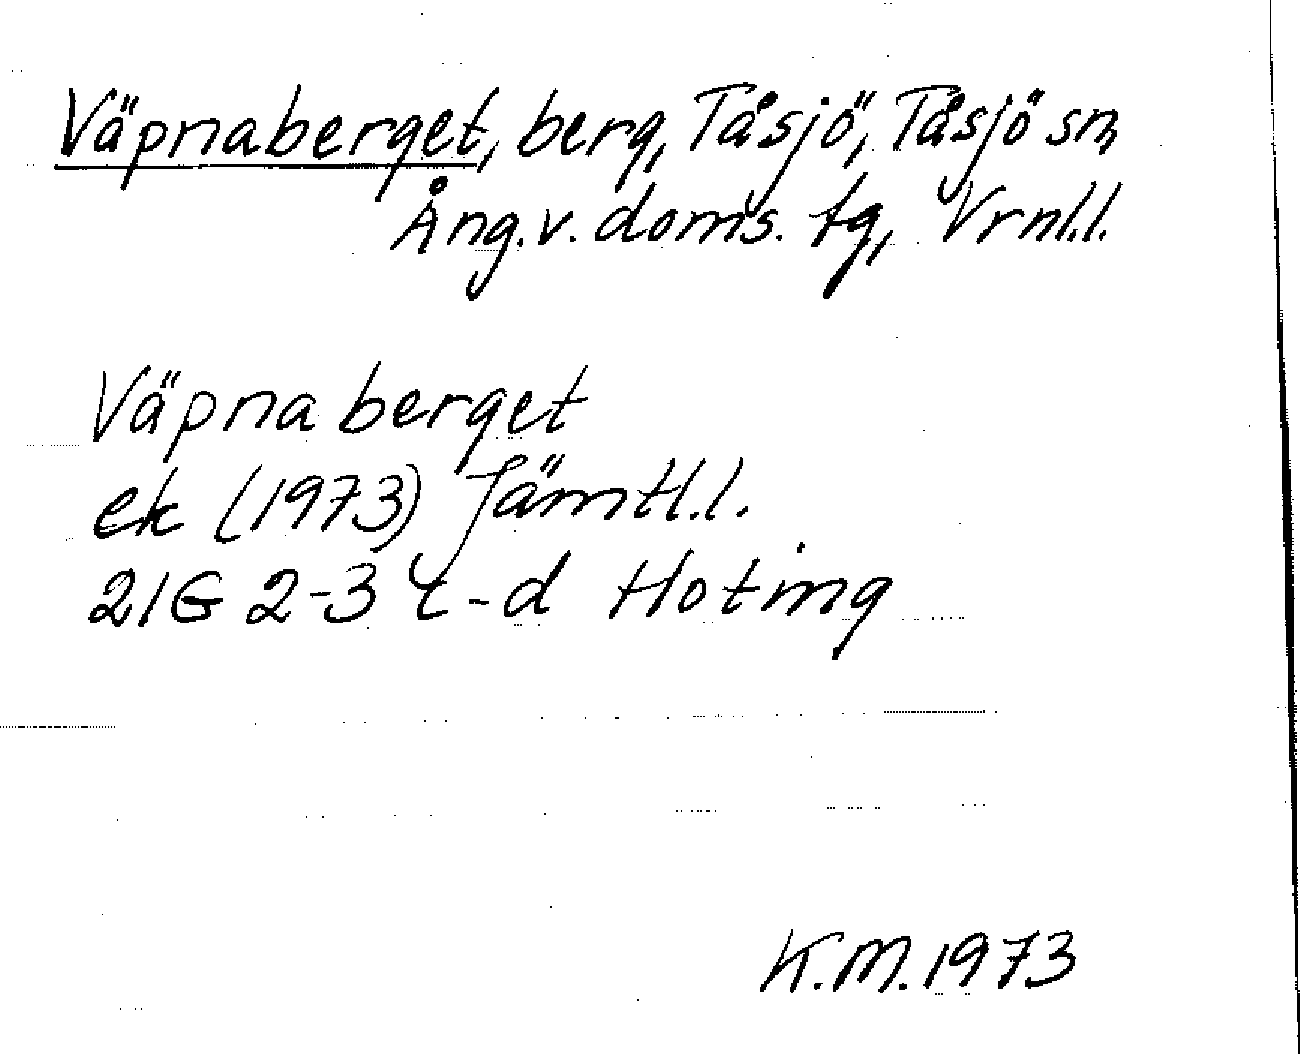 Väpnaberget, berg, Tåsjö, Tåsjö sn,
Ång.v. doms. tg, Vrnl.l.
Väpnaberget
ek (1973) Jämtl.l.
21G 2-3 c-d Hoting
K.M. 1973